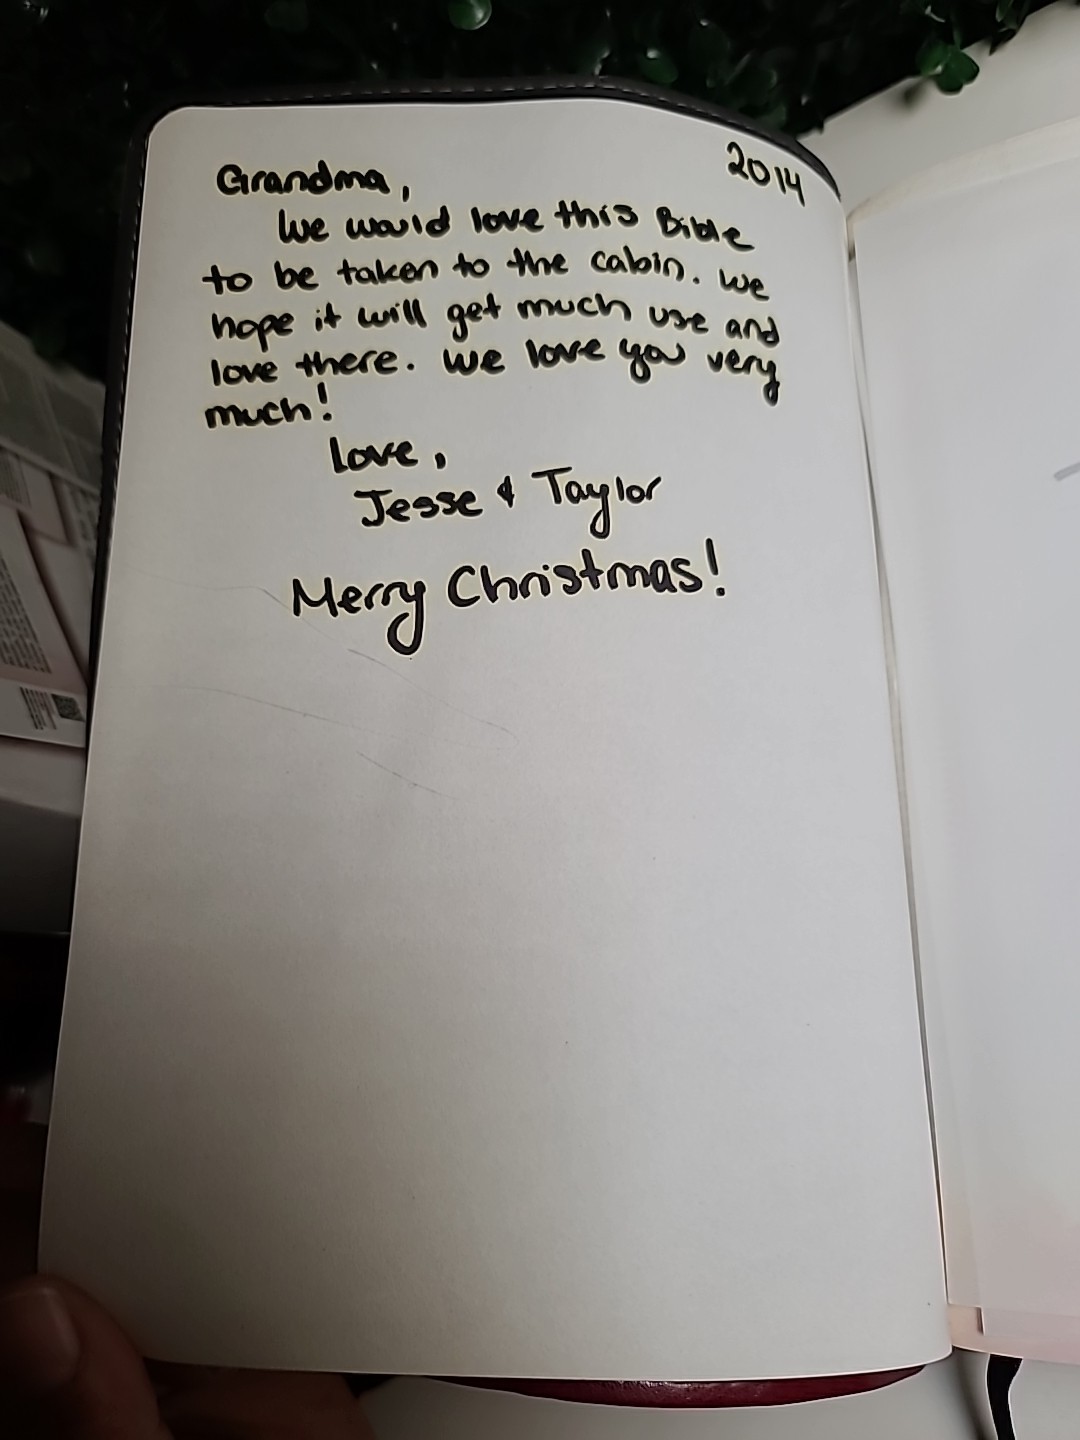 2014
Grandma,
We would love this Bible
to be taken to the cabin. We
hope it will get much use and
love there. We love you very
much!
Love,
Jesse & Taylor
Merry Christmas!